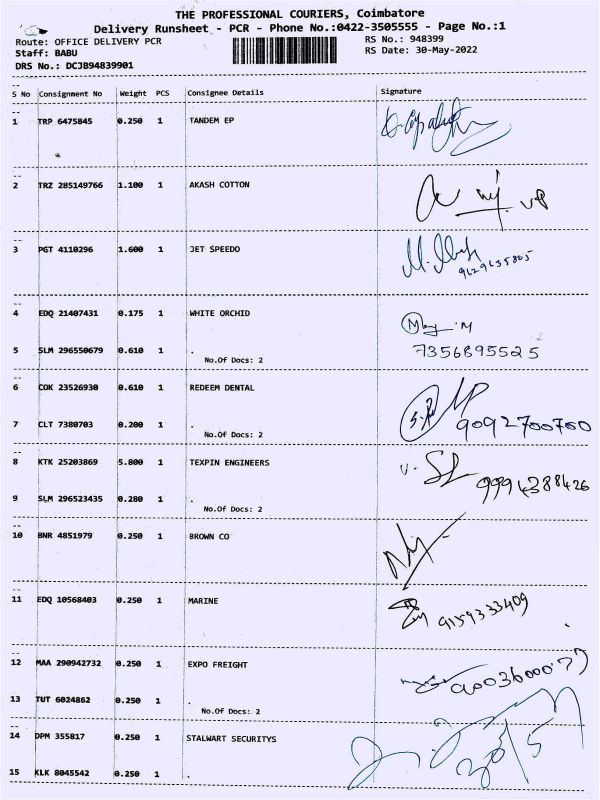 THE PROFESSIONAL COURIERS, Coimbatore
Delivery Runsheet - PCR - Phone No.:0422-3505555 - Page No.:1
Route: OFFICE DELIVERY PCR RS No.: 948399
Staff: BABU RS Date: 30-May-2022
DRS No.: DCJB94839901
S No Consignment No Weight PCS Consignee Details Signature
1 TRP 6475845 0.250 1 TANDEM EP
2 TRZ 285149766 1.100 1 AKASH COTTON
3 PGT 4110296 1.600 1 JET SPEEDO
4 EDQ 21407431 0.175 1 WHITE ORCHID
5 SLM 296550679 0.610 1 . 7356895525
No.Of Docs: 2
6 COK 23526930 0.610 1 REDEEM DENTAL
7 CLT 7380703 0.200 1 . 9092700700
No.Of Docs: 2
8 KTK 25203869 5.800 1 TEXPIN ENGINEERS
9 SLM 296523435 0.280 1 . 9994388426
No.Of Docs: 2
10 BNR 4851979 0.250 1 BROWN CO
11 EDQ 10568403 0.250 1 MARINE 9159333409
12 MAA 290942732 0.250 1 EXPO FREIGHT
13 TUT 6024862 0.250 1 .
No.Of Docs: 2
14 DPM 355817 0.250 1 STALWART SECURITYS 30/5
15 KLK 8045542 0.250 1 .